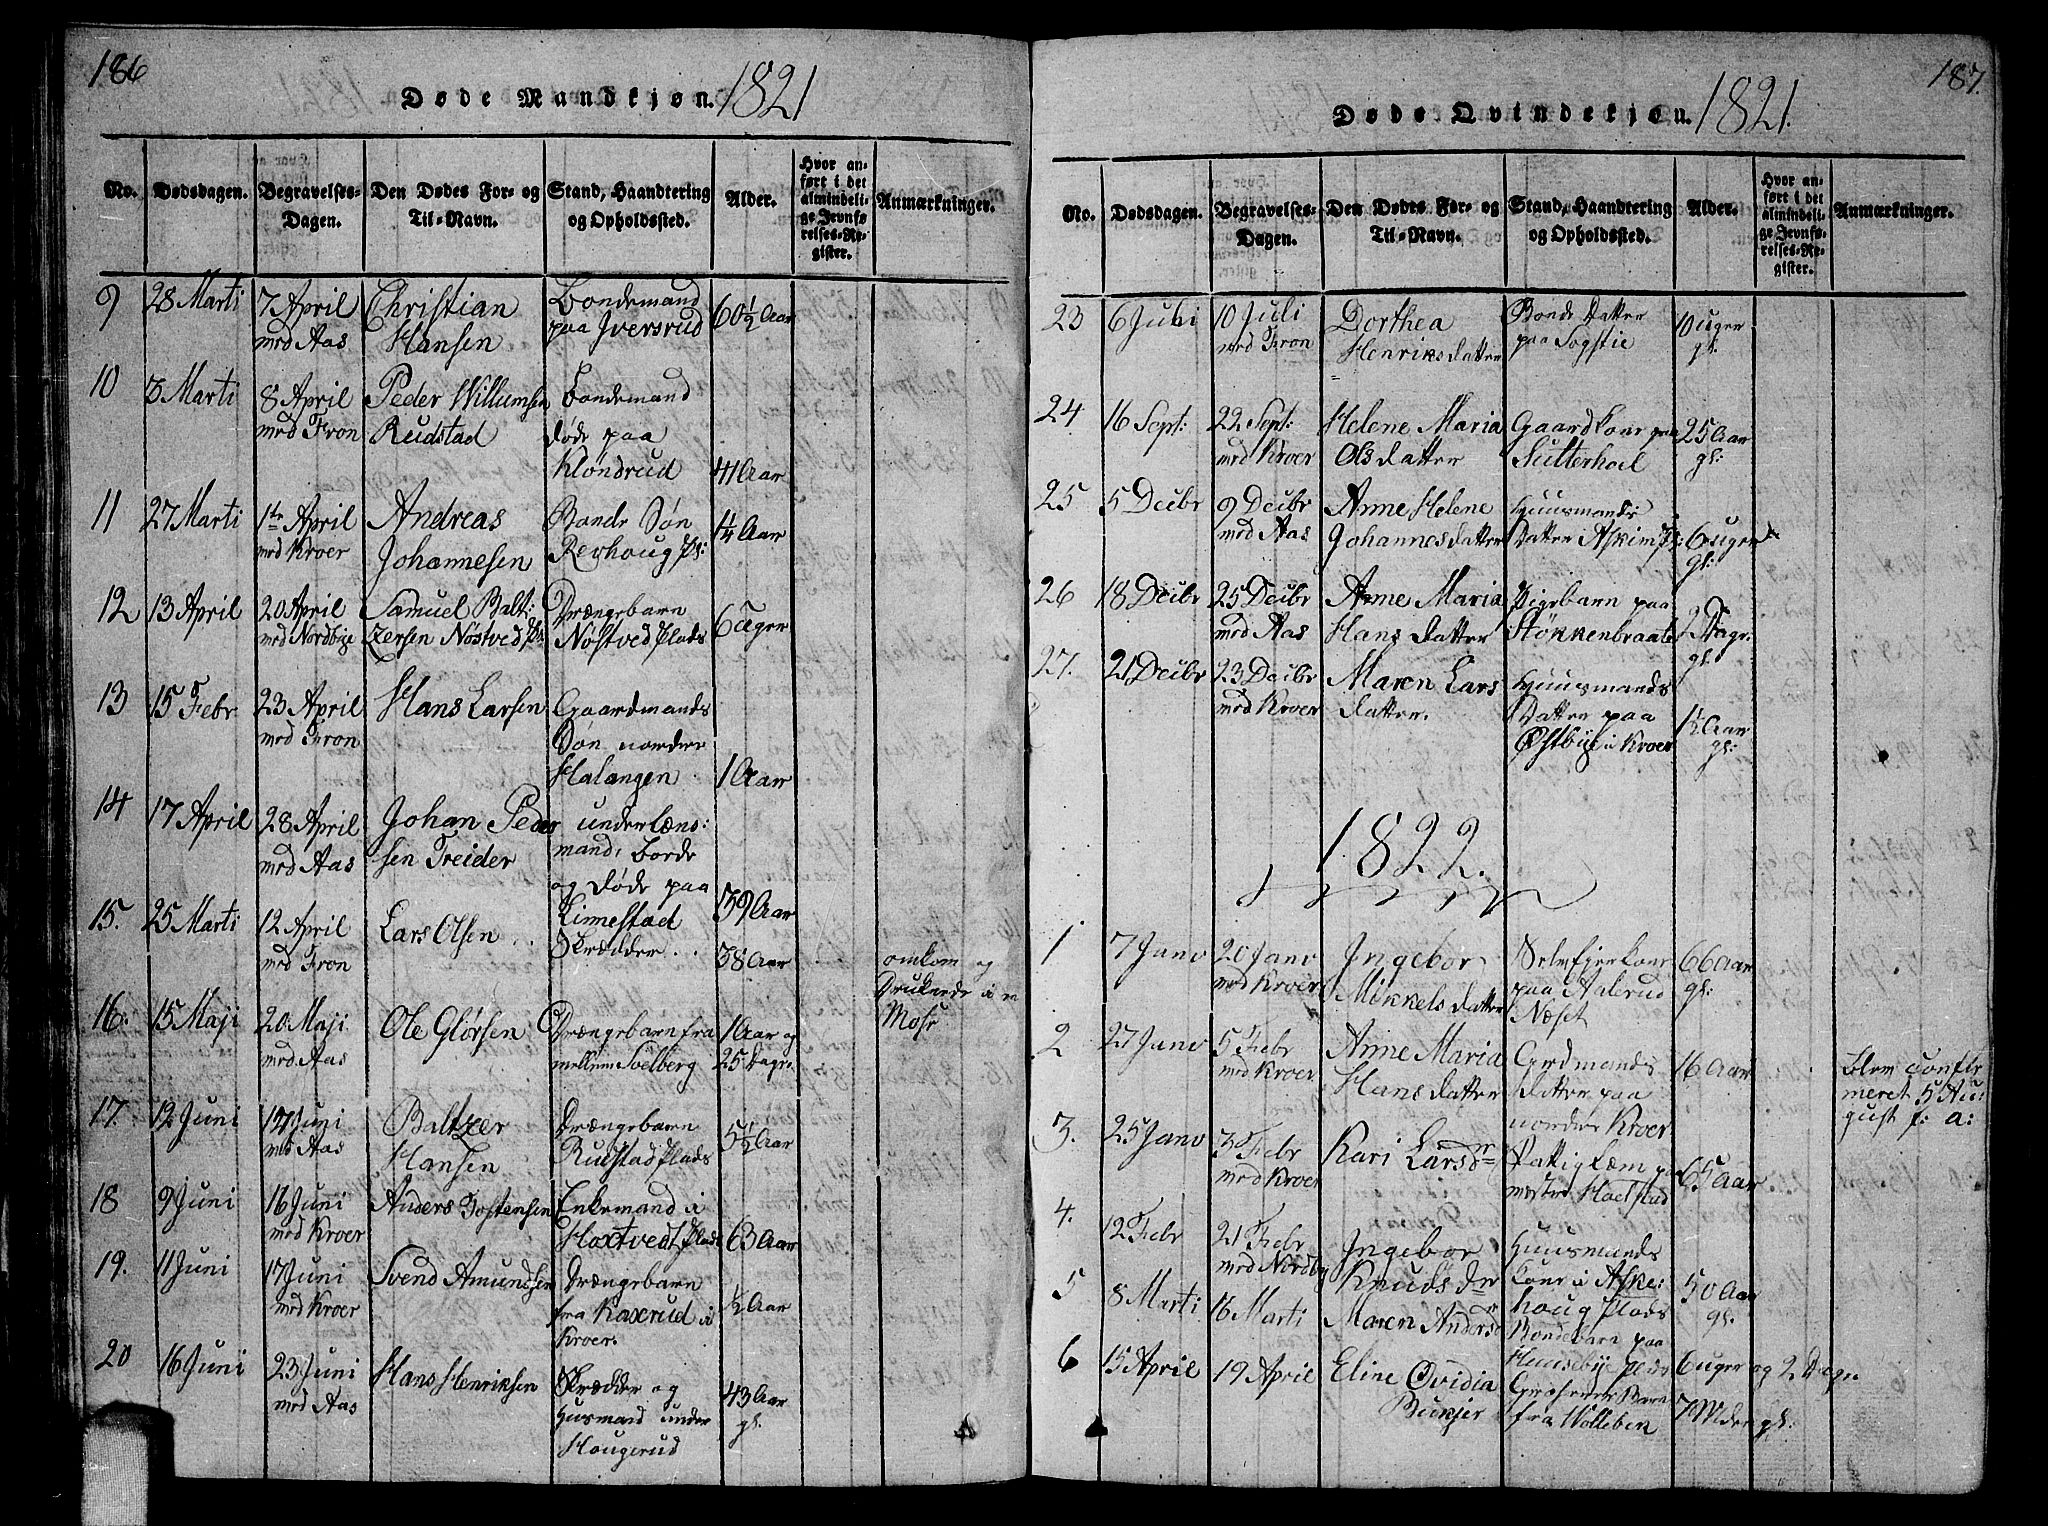 186
Døde Mandkjøn. 1821
No. Dødsdagen. Begravelses-Dagen. Den Dødes For- og Til-Navn. Stand, Haandtering og Opholdssted. Alder. Hvor anført i det almindelige Jevnførelses-Register. Anmærkninger.
9 28 Marti 7 April Christian Bondemand 60½ Aar
med Aas Hansen paa Iversrud
10 3 Marti 8 April Peder Willumsen Bondemand
med Fron Rudstad døde paa
Kløndrud 41 Aar
11 27 Marti 1te April Andreas Bonde Søn 1¼ Aar
med Kroer Johannesen Revhoug Pl:
12 13 April 20 April Samuel Balt: Drængebarn 6 Uger
med Nordbye zersen Nøstved Pl: Nøstved Plads
13 15 Febr 23 April Hans Larsen Gaardmands
med Fron Søn nordre
Halangen 1 Aar
14 17 April 28 April Johan Peder underlæns:
med Aas sen Treider mand, Borde
og døde paa 39 Aar
Linnestad
15. 25 Marti 12 April Lars Olsen Skrædder 38 Aar
med Fron omkom og
Druknede i en
Mose
16. 15 Maji 20 Maji Ole Glørsen Drængebarn fra 1 Aar og
med Aas mellem Sølberg 25 Dage
17. 12 Juni 17 Juni Baltzer Drængebarn 5½ Aar
med Aas Hansen Rustad Plads
18 9 Juni 16 Juni Anders Tostensen Enkemand i
med Kroer Hoxtvedt Plads 63 Aar
19. 11 Juni 17 Juni Svend Amundsen Drængebarn ½ Aar
med Kroer fra Kaxrud i
Kroer
20 16 Juni 23 Juni Hans Henriksen Skrædder og 43 Aar
med Aas Husmand under gl.
Hougerud
187.
Døde Qvindekjøn. 1821.
No. Dødsdagen. Begravelses-Dagen. Den Dødes For- og Til-Navn. Stand, Haandtering og Opholdssted. Alder. Hvor anført i det almindelige Jevnførelses-Register. Anmærkninger.
23 6 Juli 10 Juli Dorthea Bonde Datter 10 Uger
med Fron Henriksdatter paa Sogstie gl.
24. 16 Sept: 22 Sept: Helene Maria Gaardkone paa 25 Aar
med Kroer Olsdatter Sutterhoel gl:
25 5 Decbr 9 Decbr Anne Helene Huusmands
med Aas Johannesdatter Datter Askim 6 Uger
gl:
26 18 Decbr 25 Decbr Anne Maria Pigebarn paa
med Aas Hansdatter Støkkenbraate 9 Dage
gl:
27. 21 Decbr 23 Decbr Maren Lars Huusmands
med Kroer datter. Datter paa 1½ Aar
Østbye i Kroer gl:
1822.
1 7 Janv 20 Janv Ingebor Selvejerkone 66 Aar
med Kroer Mikkelsdatter paa Aalerud gl:
Næset
2 27 Janv 5 Febr Anne Maria Grdmands 16 Aar
med Kroer Hansdatter datter paa
nordre Kroer
Blev Confir
meret 5 Au
gust f: a:
3. 25 Janv 3 Febr Kari Larsdr Fattiglem paa 65 Aar
med Kroer mestre Hoelstad
4. 12 Febr 21 Febr Ingebor Huusmands
med Nordby Knudsdr kone i Aske: 50 Aar
houg Plads gl.
5 8 Marti 16 Marti Maren Andersdr Bondebarn paa
Huusebye Plds 6 Uger og 2 Dage
6 15 April 19 April Eline Ovidia Barn 7 Mdr gl:
Bunkjer fra Wolleben